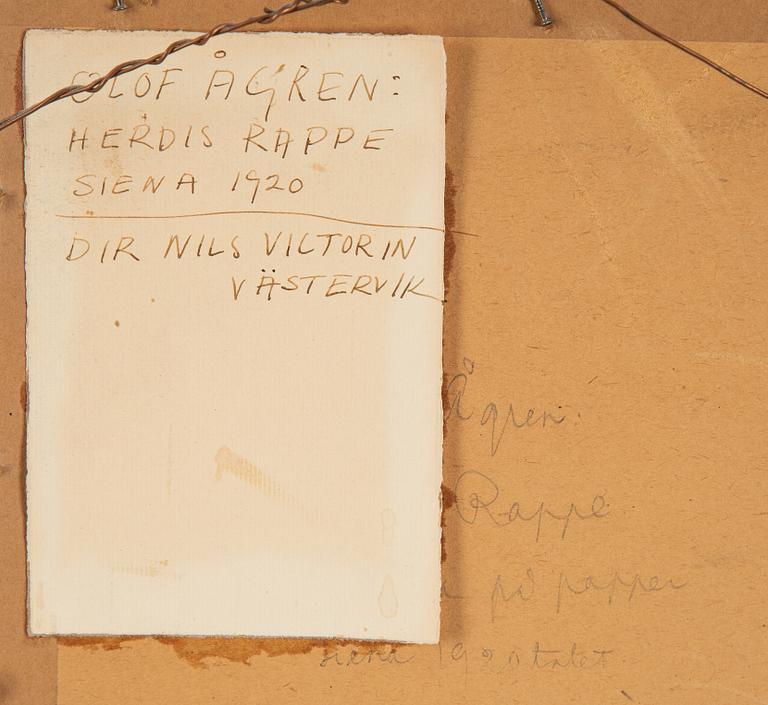 OLOF ÅGREN:
HERDIS RAPPE
SIENA 1920
DIR NILS VICTORIN
VÄSTERVIK
Ågren:
Rappe
på papper
siena 1920 talet